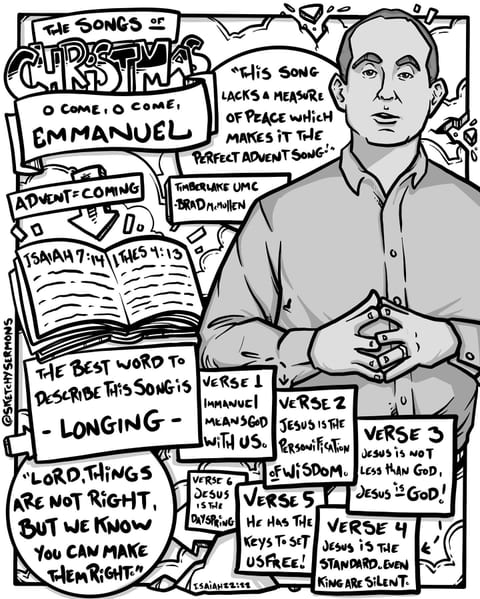 THE SONGS OF
CHRISTMAS
O COME, O COME,
EMMANUEL
"THIS SONG
LACKS A MEASURE
OF PEACE WHICH
MAKES IT THE
PERFECT ADVENT SONG!"
TIMBERLAKE UMC
-BRAD McMULLEN
ADVENT=COMING
ISAIAH 7:14
1 THES 4:13
@SKETCHYSERMONS
THE BEST WORD TO
DESCRIBE THIS SONG IS
- LONGING -
"LORD, THINGS
ARE NOT RIGHT,
BUT WE KNOW
YOU CAN MAKE
THEM RIGHT."
VERSE 1
IMMANUEL
MEANS GOD
WITH US.
VERSE 2
JESUS IS THE
PERSONIFICATION
OF WISDOM.
VERSE 3
JESUS IS NOT
LESS THAN GOD,
JESUS IS GOD!
VERSE 6
JESUS
IS THE
DAYSPRING
VERSE 5
HE HAS THE
KEYS TO SET
US FREE!
VERSE 4
JESUS IS THE
STANDARD. EVEN
KING ARE SILENT.
ISAIAH 22:22